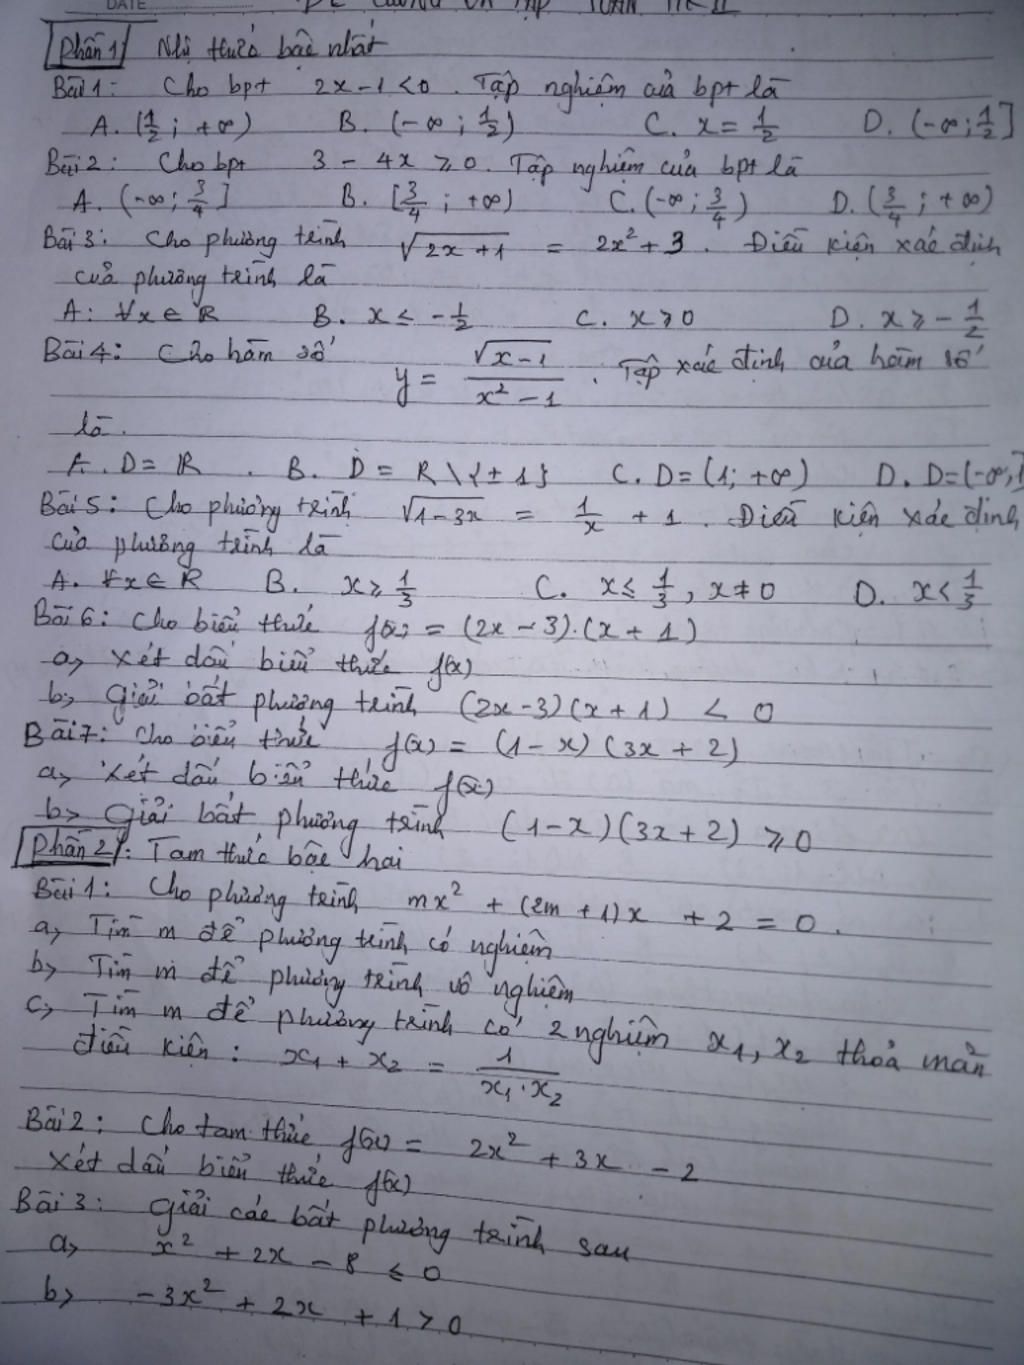 DATE
ĐỀ CƯƠNG ÔN TẬP TOÁN HK II
Phần 1 Nhị thức bậc nhất
Bài 1: Cho bpt 2x - 1 < 0. Tập nghiệm của bpt là
A. (1/2; +∞) B. (-∞; 1/2) C. x = 1/2 D. (-∞; 1/2]
Bài 2: Cho bpt 3 - 4x ⩾ 0. Tập nghiệm của bpt là
A. (-∞; 3/4] B. [3/4; +∞) C. (-∞; 3/4) D. (3/4; +∞)
Bài 3: Cho phương trình √(2x+1) = 2x² + 3. Điều kiện xác định
của phương trình là
A: ∀x ∈ R B. x ≤ -1/2 C. x ⩾ 0 D. x ⩾ -1/2
Bài 4: Cho hàm số y = √(x-1)/(x² - 1). Tập xác định của hàm số
là.
A. D = R. B. D = R\{±1} C. D = (1; +∞) D. D = (-∞; 1
Bài 5: Cho phương trình √(1-3x) = 1/x + 1. Điều kiện xác định
của phương trình là
A. ∀x ∈ R B. x ⩾ 1/3 C. x ≤ 1/3, x ≠ 0 D. x < 1/3
Bài 6: Cho biểu thức f(x) = (2x - 3).(x + 1)
a, Xét dấu biểu thức f(x)
b, Giải bất phương trình (2x - 3)(x + 1) < 0
Bài 7: Cho biểu thức f(x) = (1 - x)(3x + 2)
a, Xét dấu biểu thức f(x)
b, Giải bất phương trình (1 - x)(3x + 2) ⩾ 0
Phần 2: Tam thức bậc hai
Bài 1: Cho phương trình mx² + (2m + 1)x + 2 = 0.
a, Tìm m để phương trình có nghiệm
b, Tìm m để phương trình vô nghiệm
c, Tìm m để phương trình có 2 nghiệm x₁, x₂ thoả mãn
điều kiện: x₁ + x₂ = 1/(x₁.x₂)
Bài 2: Cho tam thức f(x) = 2x² + 3x - 2
Xét dấu biểu thức f(x)
Bài 3: Giải các bất phương trình sau
a, x² + 2x - 8 ≤ 0
b, -3x² + 2x + 1 > 0